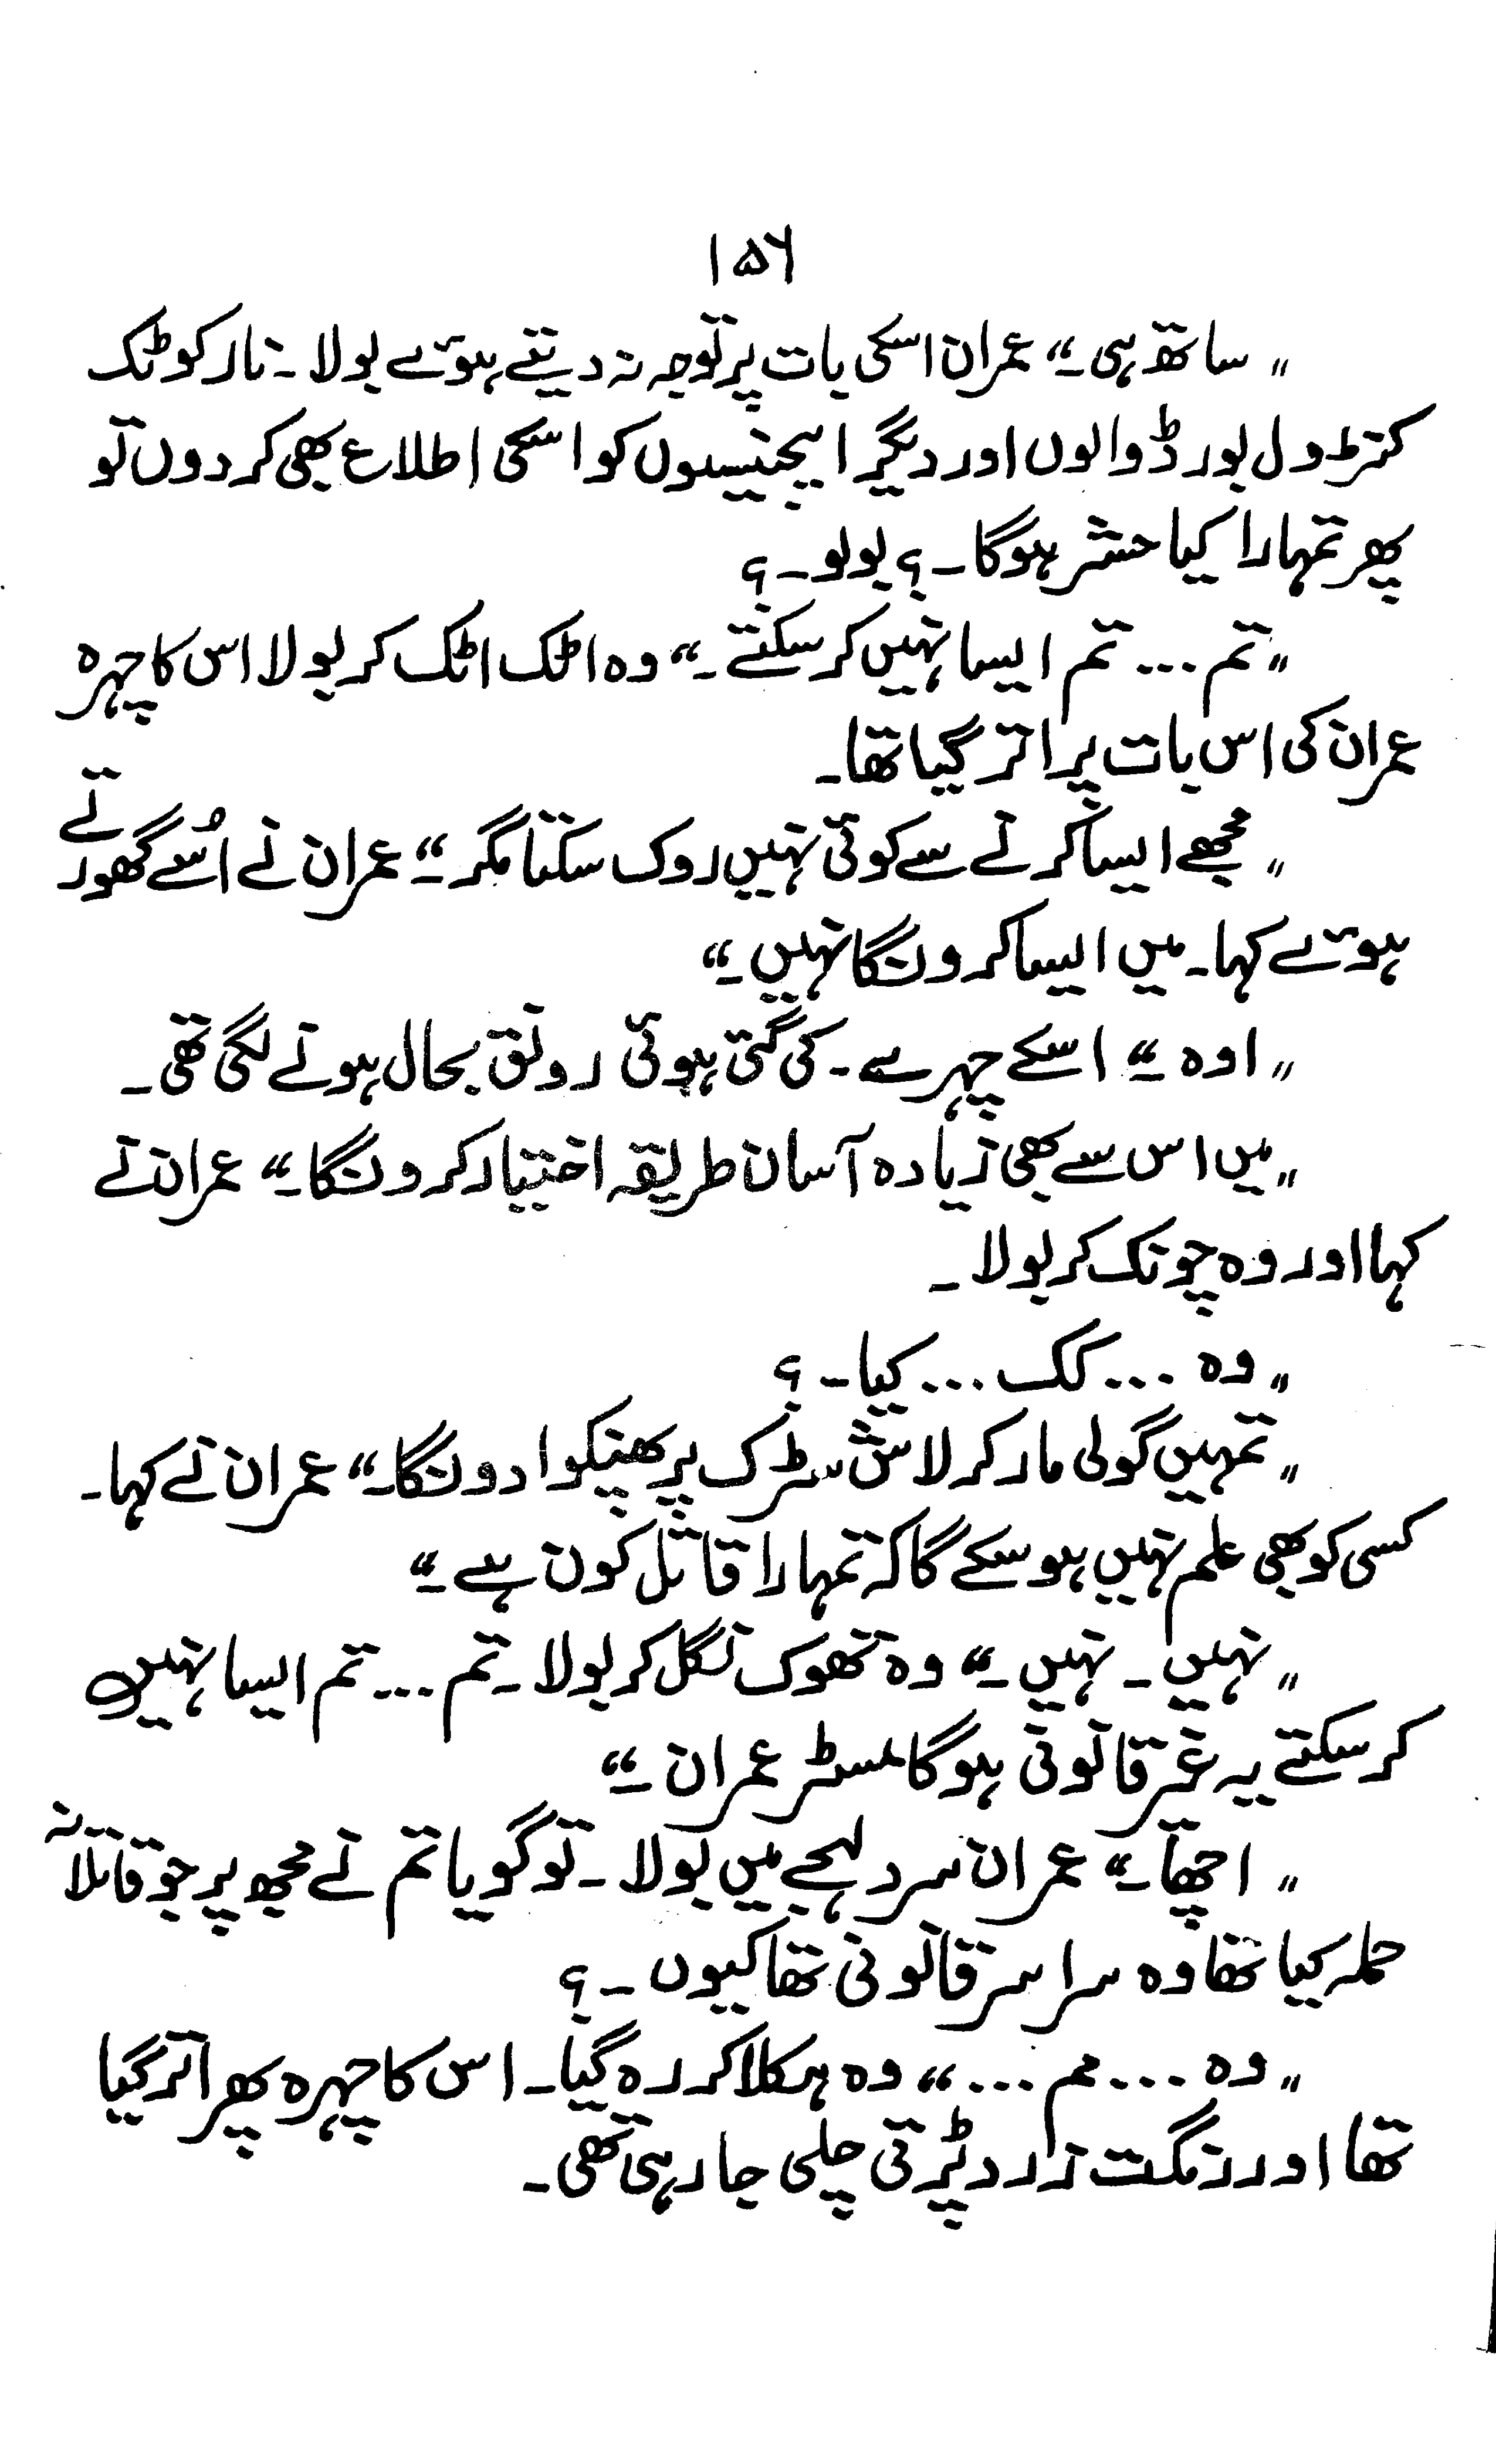 ۱۵۶
"ساتھ ہی۔" عمران اسکی بات پر توجہ نہ دیتے ہوئے بولا۔ نارکوٹک
کنٹرول بورڈ والوں اور دیگر ایجنیسیوں کو اسکی اطلاع بھی کر دوں تو
پھر تمہارا کیا حشر ہوگا۔؟ بولو۔؟
"تم ... تم ایسا نہیں کر سکتے۔" وہ اٹک اٹک کر بولا اس کا چہرہ
عمران کی اس بات پر اتر گیا تھا۔
"مجھے ایسا کرنے سے کوئی نہیں روک سکتا مگر۔" عمران نے اُسے گھورتے
ہوئے کہا۔ میں ایسا کرونگا نہیں۔"
"اوہ۔" اسکے چہرے۔ کی گئی ہوئی رونق بحال ہونے لگی تھی۔
"میں اس سے بھی زیادہ آسان طریقہ اختیار کرونگا۔" عمران نے
کہا اور وہ چونک کر بولا۔
"وہ ... کک ... کیا۔؟
"تمہیں گولی مار کر لاش سڑک پر پھنکوا دونگا۔" عمران نے کہا۔
کسی کو بھی علم نہیں ہو سکے گا کہ تمہارا قاتل کون ہے۔"
"نہیں۔ نہیں۔" وہ تھوک نگل کر بولا۔ تم ... تم ایسا نہیں
کر سکتے یہ غیر قانونی ہوگا مسٹر عمران۔"
"اچھا۔" عمران سرد لہجے میں بولا۔ تو گویا تم نے مجھ پر جو قاتلانہ
حملہ کیا تھا وہ سراسر قانونی تھا کیوں۔؟
"وہ ... مم ..." وہ ہکلا کر رہ گیا۔ اس کا چہرہ پھر اتر گیا
تھا اور رنگت زرد پڑتی چلی جا رہی تھی۔